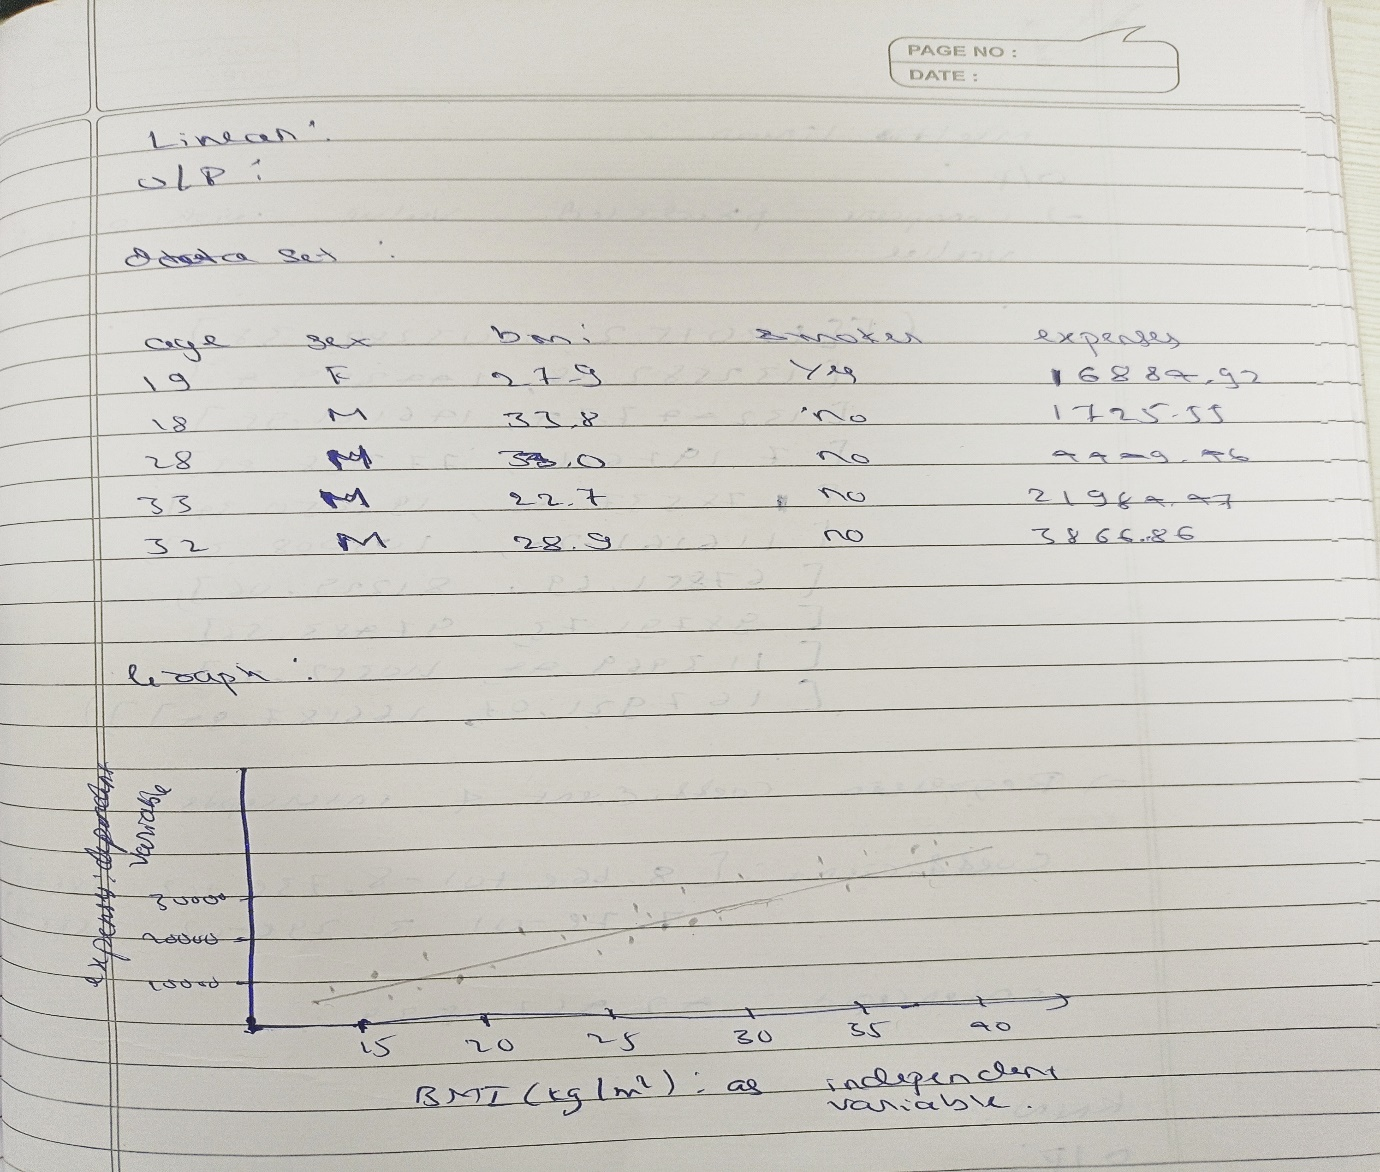 PAGE NO :
DATE :
Linear :
O/P :
Data set :
age sex bmi smoker expenses
19 F 27.9 Yes 16884.92
18 M 33.8 no 1725.55
28 M 33.0 no 4449.46
33 M 22.7 no 21984.47
32 M 28.9 no 3866.86
Graph :
expenses: dependent
variable
30000
20000
10000
15 20 25 30 35 40
BMI (kg/m²) : as independent
variable.